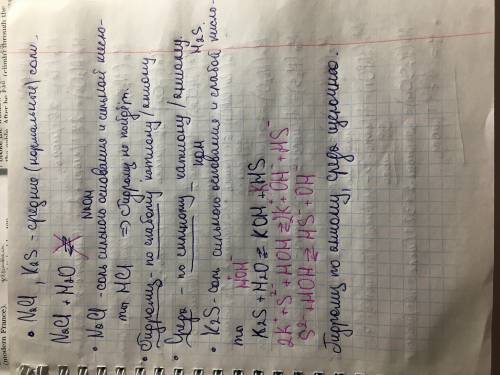 • NaCl, K2S - средние (нормальные) соли.
NaCl + H2O ⇄
NaOH
• NaCl - соль сильного основания и сильной кисло-
ты HCl ⇒ Гидролиз не пойдёт.
• Гидролиз - по слабому катиону/аниону
• Среда - по сильному катиону/аниону.
KOH H2S
• K2S - соль сильного основания и слабой кисло-
ты
HOH
K2S + H2O ⇄ KOH + KHS
2K⁺ + S²⁻ + HOH ⇄ 2K⁺ + OH⁻ + HS⁻
S²⁻ + HOH ⇄ HS⁻ + OH⁻
Гидролиз по аниону, среда щелочная.
(modern France).